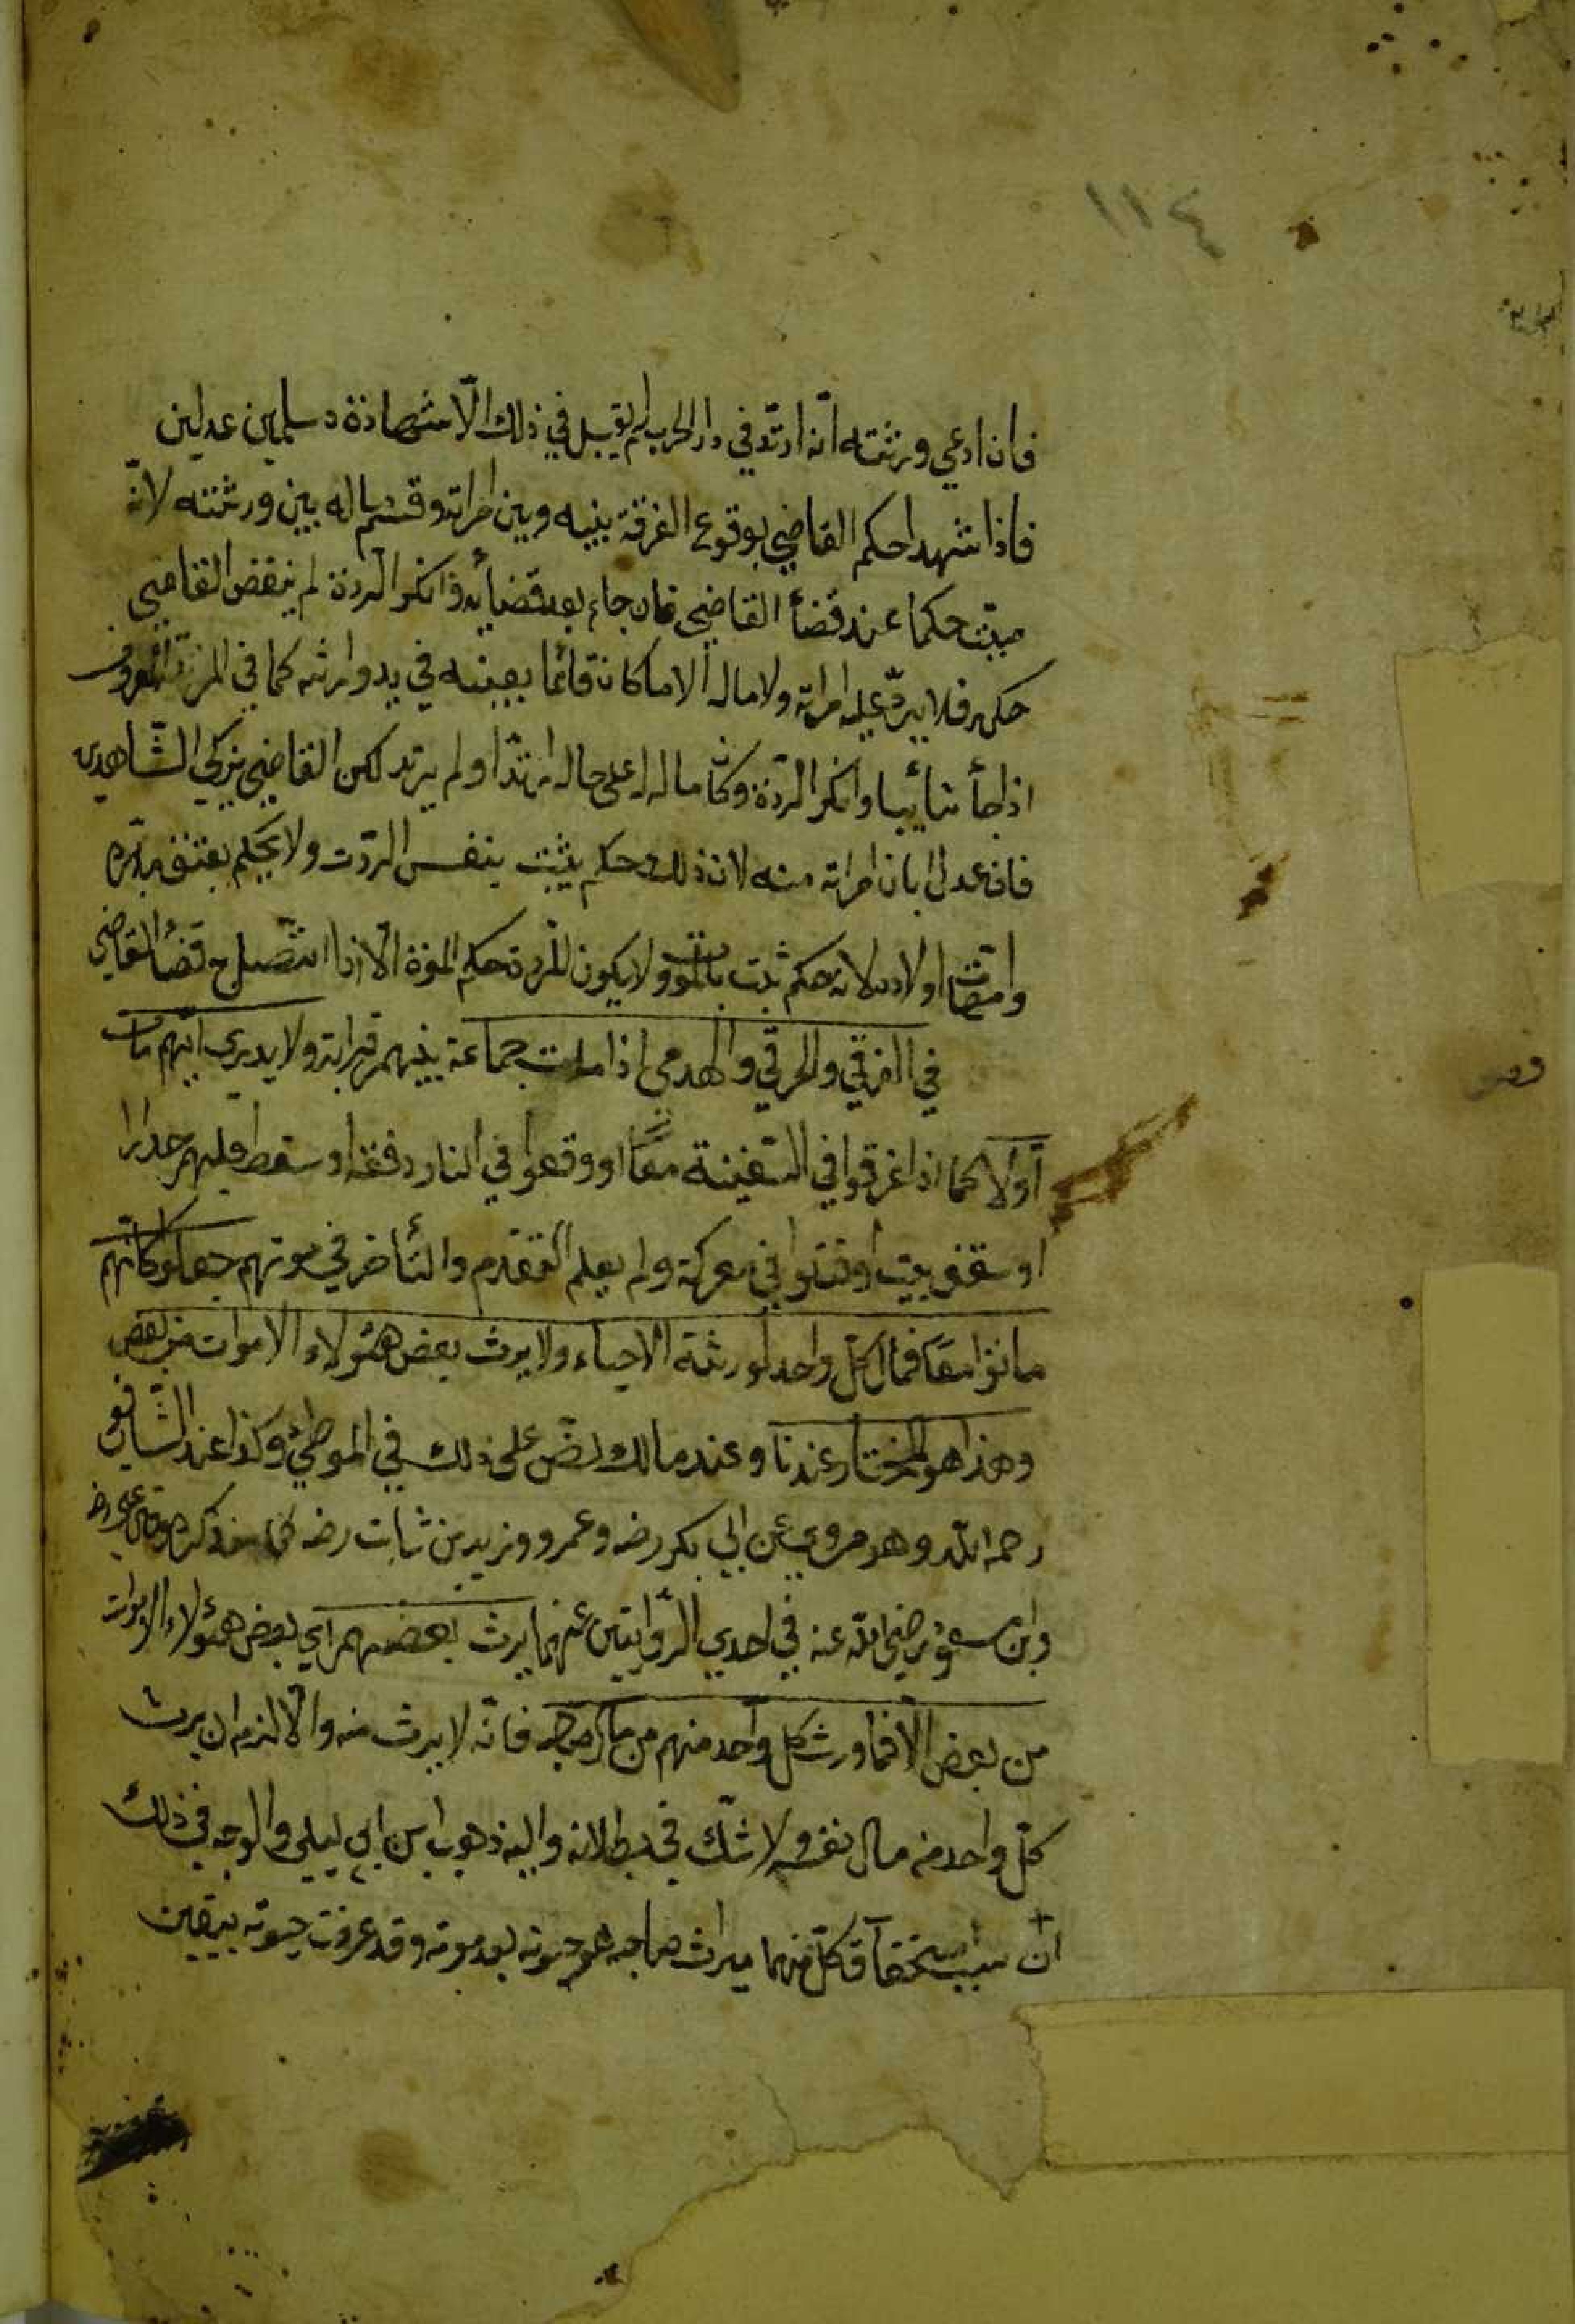 ١١٤
فان ادعي ورثته انّه ارتدّ في دار الحرب لم يقبل في ذلك الّا شهادة مسلمين عدلين
فاذا شهدا حكم القاضي بوقوع الفرقة بينه وبين امراته وقسم ماله بين ورثته لانّه
ميّت حكما عند قضأ القاضي فان جاء بعد قضائه وانكر الردّة لم ينقض القاضي
حكمه فلا يردّ عليه امراته ولا ماله الا ما كان قائما بعينه في يد وارثه كما في المرتدّ المعروف
اذا جأ تائبا وانكر الردّة وكان ماله له على حاله ارتدّ او لم يرتد لكن القاضي يزكي الشّاهدين
فان عدلا بان امراته منه لان ذلك حكم يثبت بنفس الردّت ولا يحكم بعتق مدبّره
وامّهات اولاده لانه حكم ثبت بالموت ولا يكون للردة حكم الموة الّا اذا اتّصل به قضأ القاضي
في الغرقي والحرقي والهدمى اذا مات جماعة بينهم قرابة ولا يدري ايّهم مات
اوّلا كما اذا غرقوا في السّفينة معًا او وقعوا في النار دفعة او سقط عليهم جدارا
او سقف بيت او قتلوا في معركة ولم يعلم التقدم والتأخر في موتهم جعلوا كانّهم
ماتوا معًا فمال كلّ واحد لورثته الاحياء ولا يرث بعض هئولاء الاموات من بعض
وهذا هو المختار عندنا وعند مالك نصّ على ذلك في الموطئ وكذا عند الشّافعي
رحمه اللّه وهو مروي عن ابي بكر رضه وعمر وزيد بن ثابت رضه كما سنذكره وقال علي رضه
وابن مسعود رضي اللّه عنه في احدي الرّوايتين عنهما يرث بعضهم اي بعض هئولاء الاموات
من بعض الّا فما ورث كل واحد منهم من مال صاحبه فانّه لا يرث منه والّا لزم ان يرث
كلّ واحد منه مال نفسه ولا شكّ في بطلانه واليه ذهب ابن ابي ليلى والوجه في ذلك
انّ سبب استحقاق كلّ منهما ميراث صاحبه هو حيوته بعد موته وقد عرفت حيوته بيقين